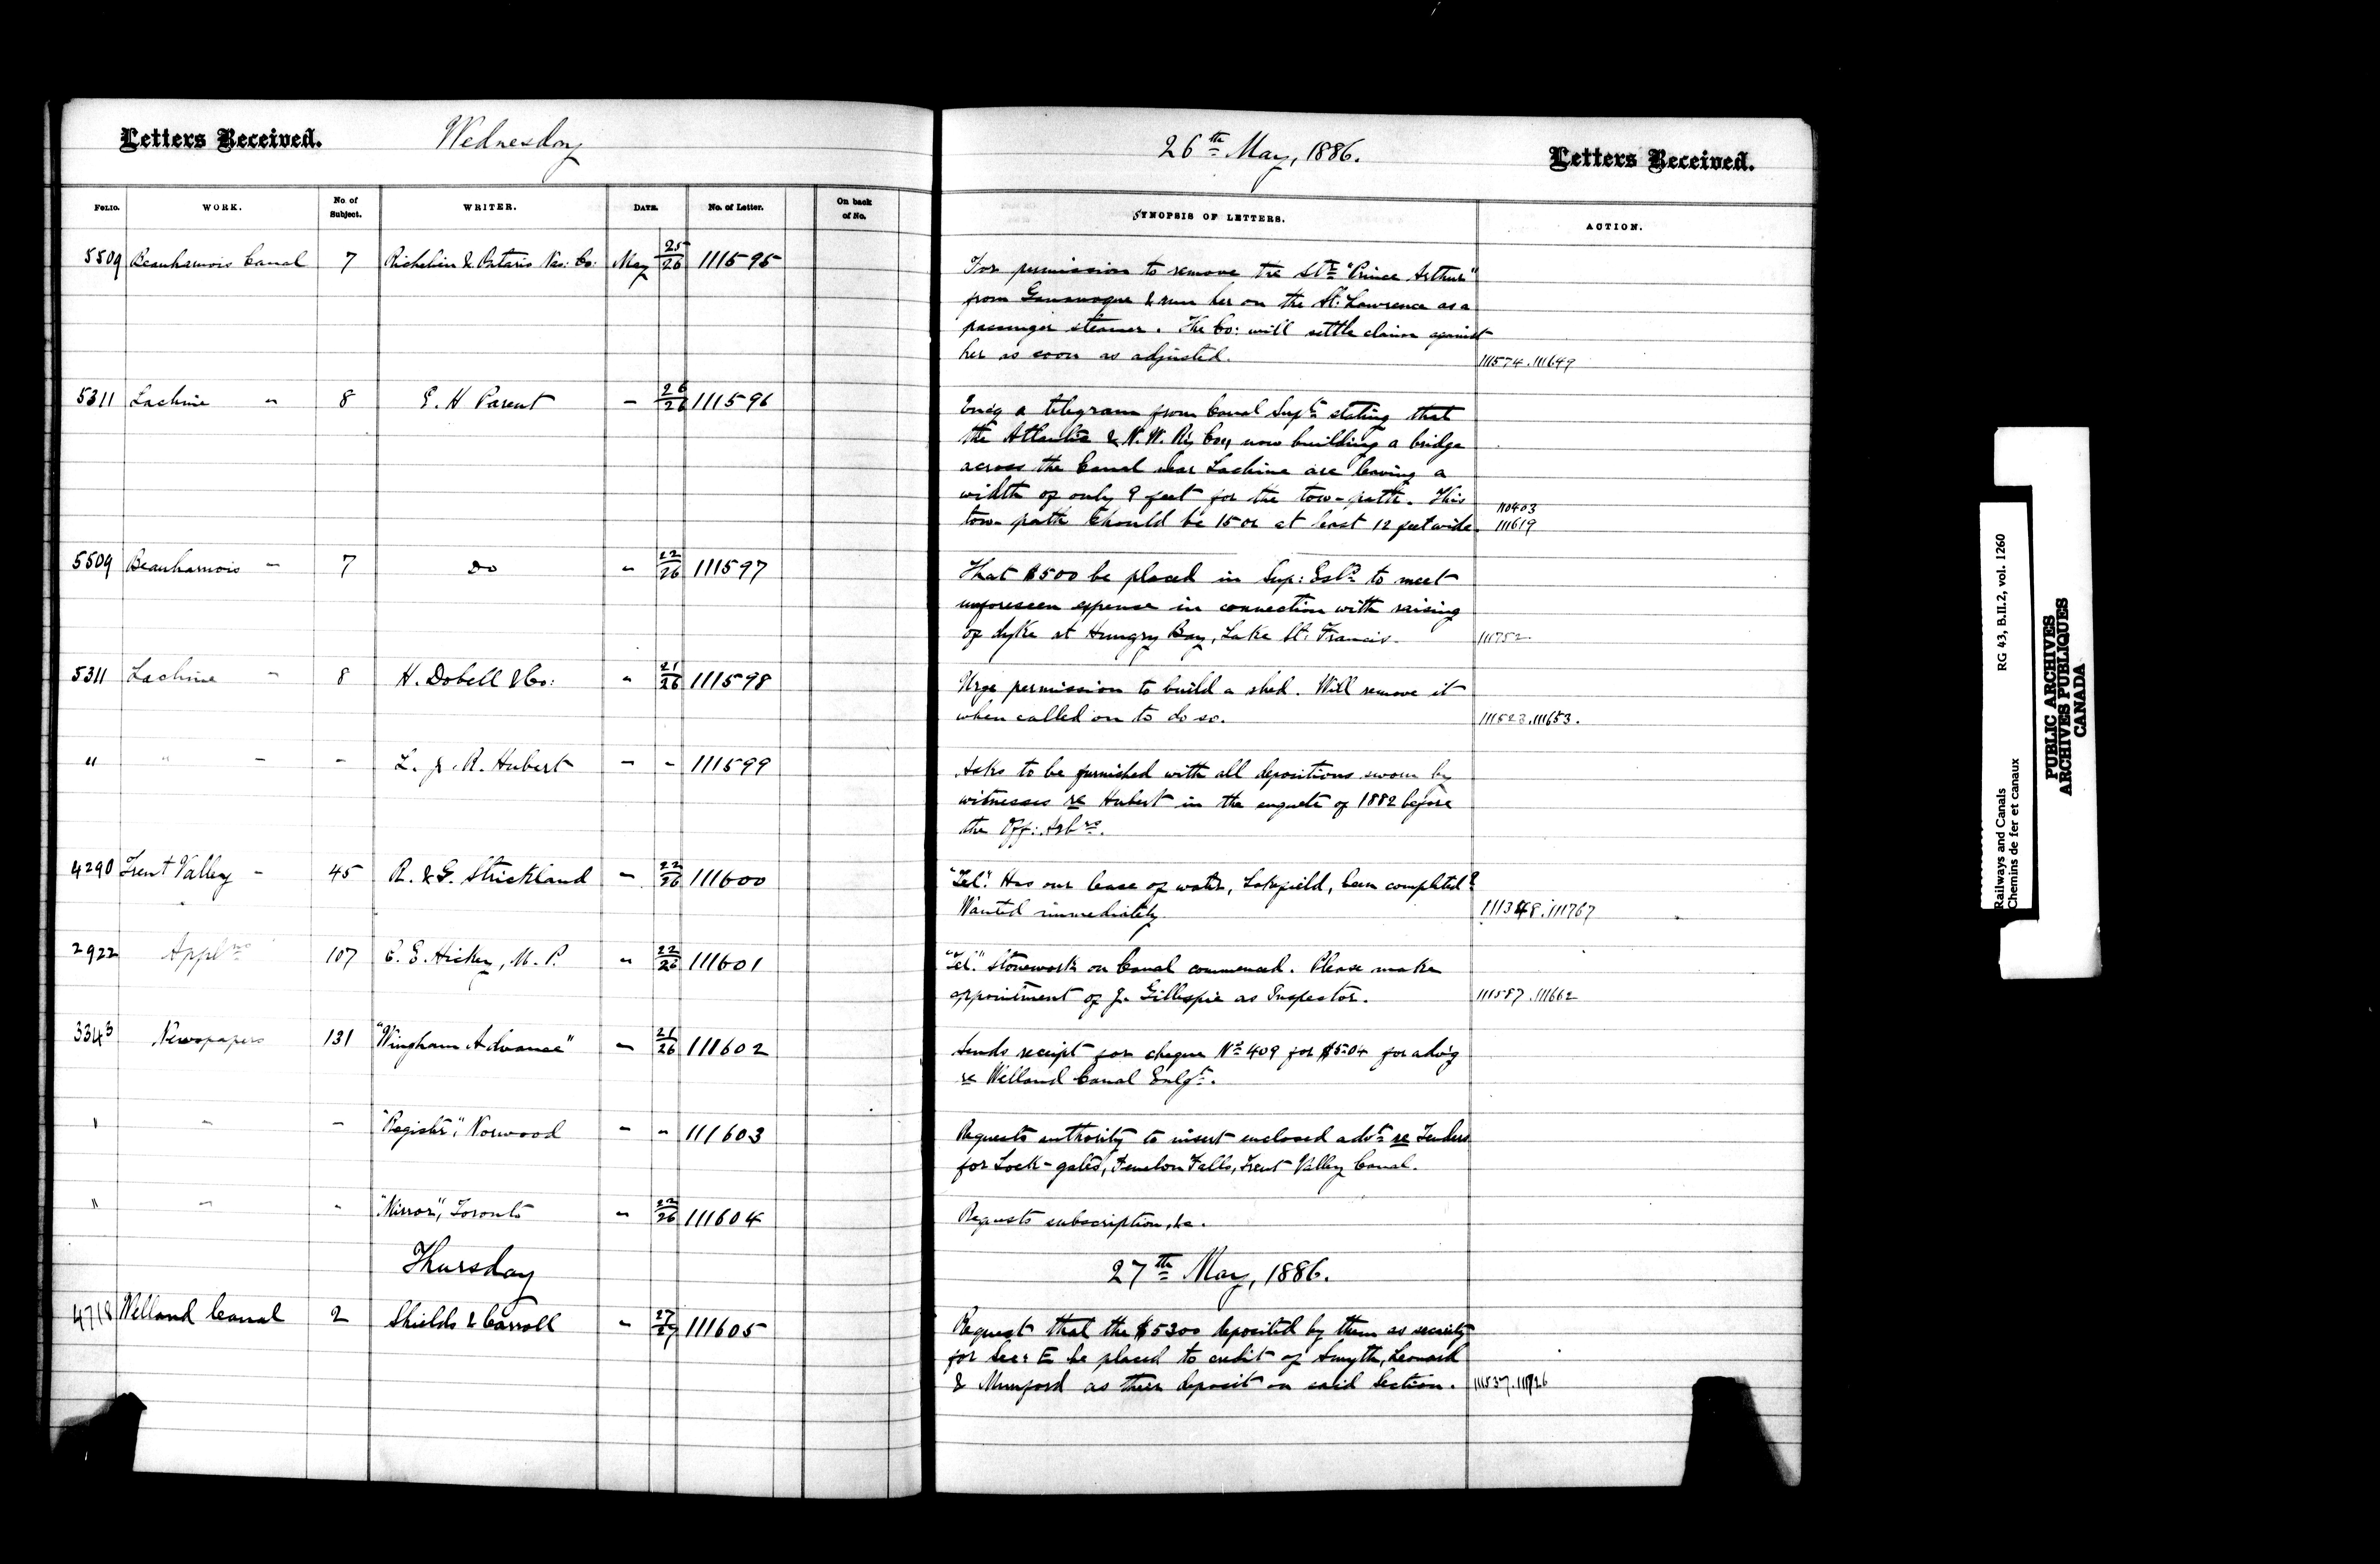 Letters Received. Wednesday 26th May, 1886. Letters Received.
FOLIO. WORK. No. of Subject. WRITER. DATE. No. of Letter. On back of No. SYNOPSIS OF LETTERS. ACTION.
5509 Beauharnois Canal 7 Richelieu & Ontario Nav: Co: May 25/26 111595
For permission to remove the Str "Prince Arthur"
from Gananoque & run her on the St: Lawrence as a
passenger steamer. The Co: will settle claims against
her as soon as adjusted. 111574.111649
5311 Lachine " 8 E. H Parent - 26/26 111596
Encg a telegram from Canal Supt stating that
the Atlantic & N. W. Ry Coy now building a bridge
across the Canal near Lachine are leaving a
width of only 9 feet for the tow-path. This 110403
tow-path should be 15 or at least 12 feet wide. 111619
5509 Beauharnois - 7 Do " 22/26 111597
That $500 be placed in Sup: Ests to meet
unforeseen expense in connection with raising
of dyke at Hungry Bay, Lake St. Francis. 111752
5311 Lachine - 8 H. Dobell & Co: " 21/26 111598
Urge permission to build a shed. Will remove it
when called on to do so. 111523.111653.
" " - - L. J. R. Hubert - - 111599
Asks to be furnished with all depositions sworn by
witnesses re Hubert in the enquete of 1882 before
the Off: Arbrs.
4290 Trent Valley - 45 R. & G. Strickland - 22/26 111600
"Tel". Has our lease of water, Lakefield, been completed?
Wanted immediately. 111348.111767
2922 Applns 107 C. E. Hickey, M. P. " 22/26 111601
"Tel." Stonework on Canal commenced. Please make
appointment of J. Gillespie as Inspector. 111587.111662
3343 Newspapers 131 "Wingham Advance" - 21/26 111602
Sends receipt for cheque No 409 for $5.04 for advg
re Welland Canal Enlgt.
" " - "Register", Norwood - - 111603
Requests authority to insert enclosed advt re Tenders
for Lock-gates, Fenelon Falls, Trent Valley Canal.
" " " "Mirror", Toronto " 22/26 111604
Requests subscription, &c.
Thursday 27th May, 1886.
4718 Welland Canal 2 Shields & Carroll " 27/27 111605
Request that the $5300 deposited by them as security
for Sec: E be placed to credit of Smyth, Leonard
& Mumford as their deposit on said Section. 111537.111726
Railways and Canals RG 43, B.II.2, vol. 1260
Chemins de fer et canaux
PUBLIC ARCHIVES
ARCHIVES PUBLIQUES
CANADA